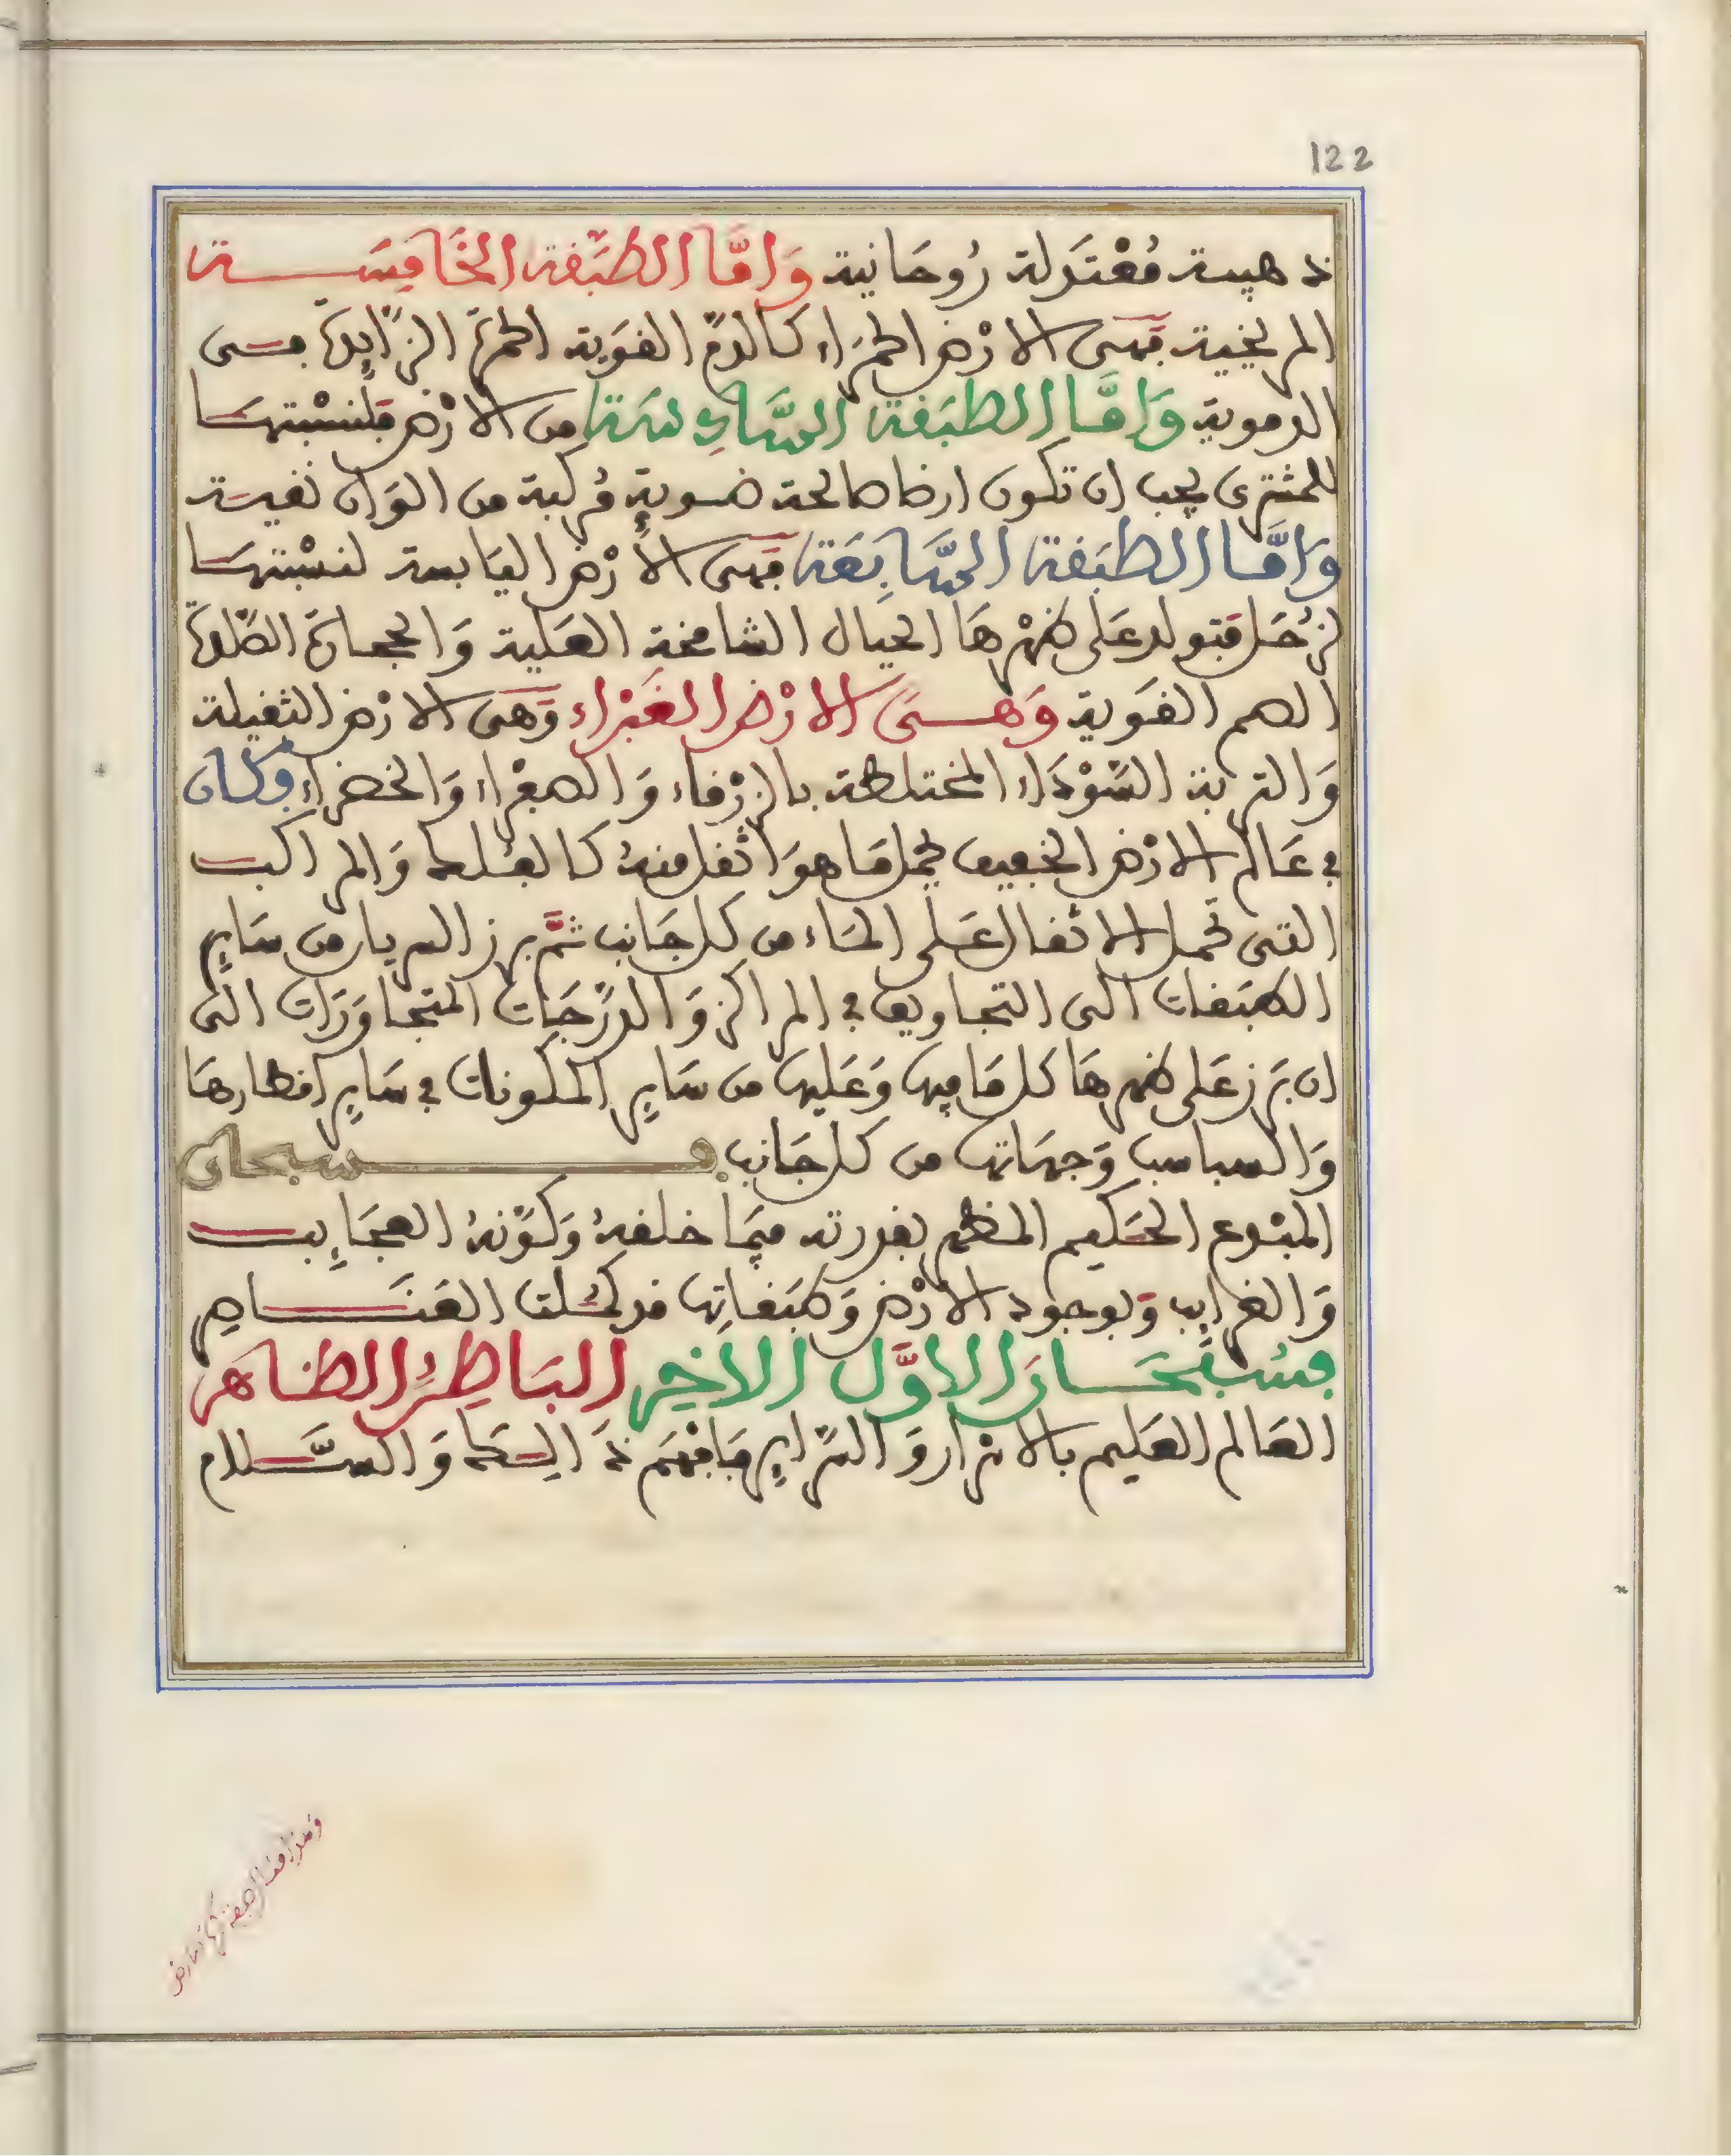 122
ذهبية مُعْتَدلة رُوحَانية وَامَّا الطبَقة الخَامِسَة
المريخية فهى الارْض الحمرَاء كالدمّ القوَية الحمرَة الزّايدَة فهى
الدموية وَامَّا الطبَقة السَّادِسَة من الارْض فلنسْبتهَا
للمشترى يجب ان تكون ارضا صالحة ضوية مُركبة من الوَان نفيسة
وَامَّا الطبَقة السَّابِعَة فهى الأرْض اليَابسة لنسْبتهَا
لزُحَل فيتولد عَلى ظهْرهَا الجبال الشامخة العَلية وَالحجارَة الصّلدَة
الصم القوَية وَهىَ الارْض الغَبْرَاء وَهَى الارْض الثقيلة
وَالتربة السّوْدَاء المختلطة بالزرْقاء وَالصفْرَاء وَالخضرَاء وكان
في عَالم الارْض الخفيف يحمل مَا هوَ اثقل منهُ كالفلك وَالمراكب
التى تحمل الاثقال عَلى المَاء من كل جَانب ثمَّ برز السريان من سَايرِ
الطبَقات الى التجاويف في المراكز وَالدّرَجَات المتجاوَرَات الى
ان بَرَز عَلى ظهرهَا كل مَا فيها وَعَليها من سَايرِ المكونات في سَايرِ اقطارهَا
وَالسباسب وَجهَاتها من كل جَانب فسبحان
المبْدع الحَكيم المظهر بقدرته فيمَا خلقهُ وَكَوّنهُ العجَايِب
وَالغرايب وَبوجود الارْض وَطبَقاتِها قد كمُلت العَنَاصِر
فسُبْحَانَ الاوَّل الاَخِر البَاطِنُ الظاهر
العَالم العَليم بالاسْرَار وَالسّرَايرِ فافهَم ذَالِكَ وَالسَّلام